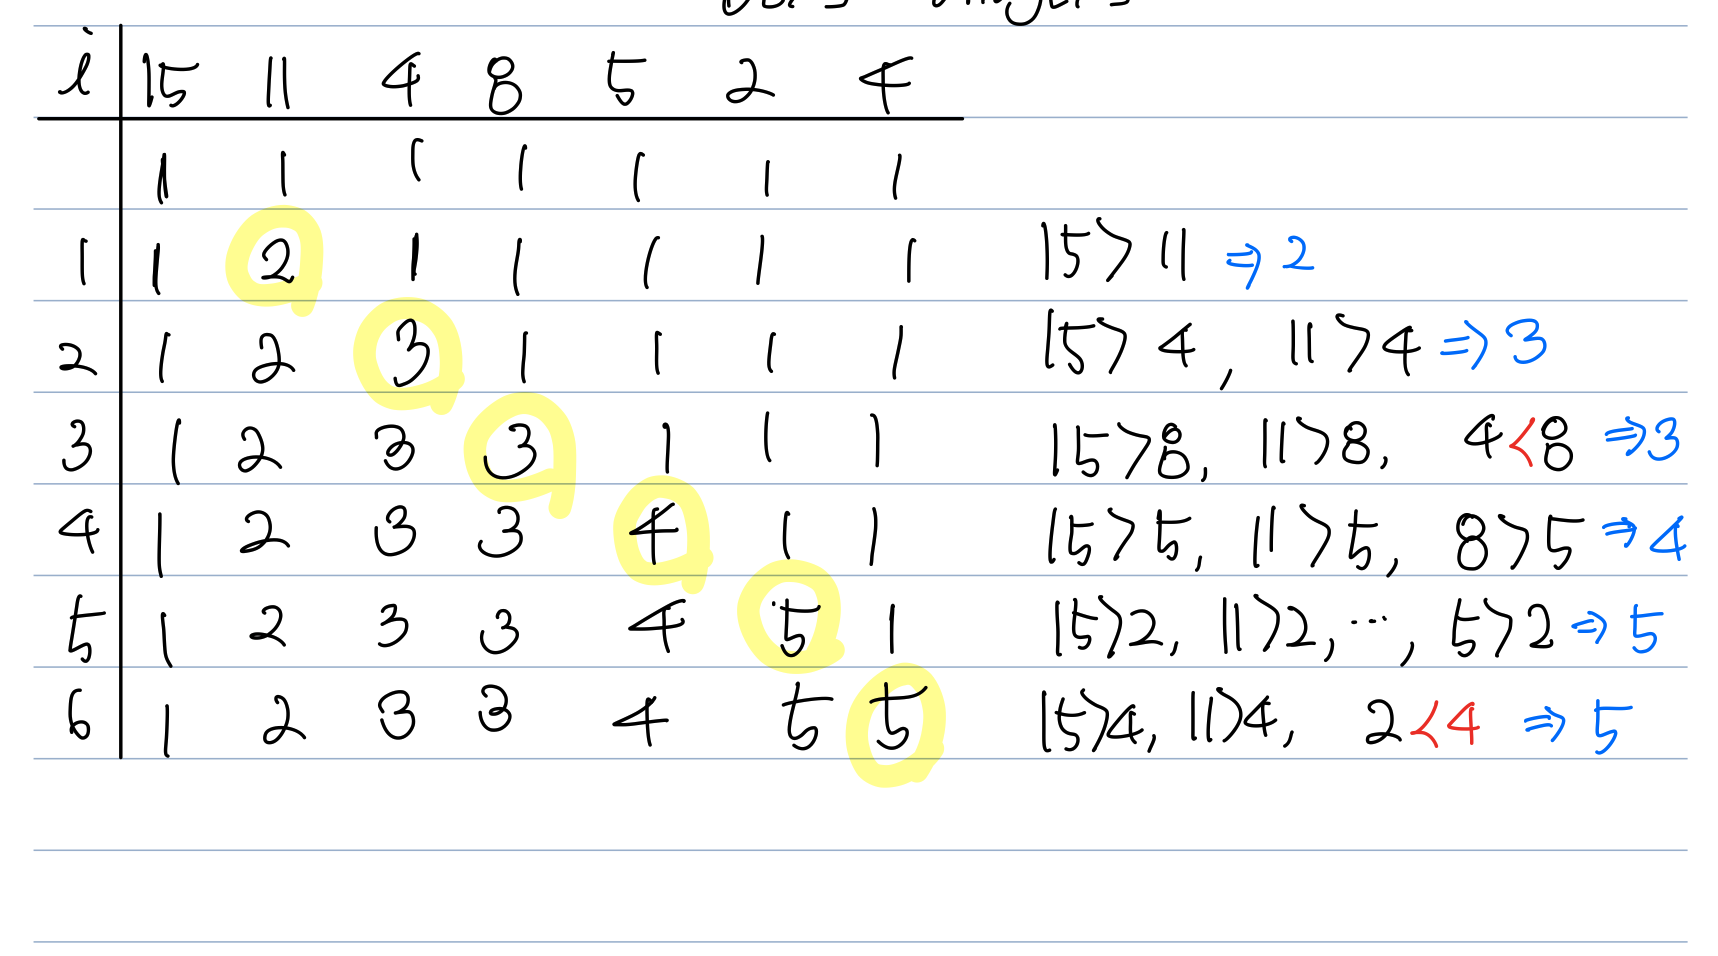 i 15 11 4 8 5 2 4
1 1 1 1 1 1 1
1 1 2 1 1 1 1 1 15 > 11 ⇒ 2
2 1 2 3 1 1 1 1 15 > 4 , 11 > 4 ⇒ 3
3 1 2 3 3 1 1 1 15 > 8, 11 > 8, 4 < 8 ⇒ 3
4 1 2 3 3 4 1 1 15 > 5, 11 > 5, 8 > 5 ⇒ 4
5 1 2 3 3 4 5 1 15 > 2, 11 > 2, ..., 5 > 2 ⇒ 5
6 1 2 3 3 4 5 5 15 > 4, 11 > 4, 2 < 4 ⇒ 5